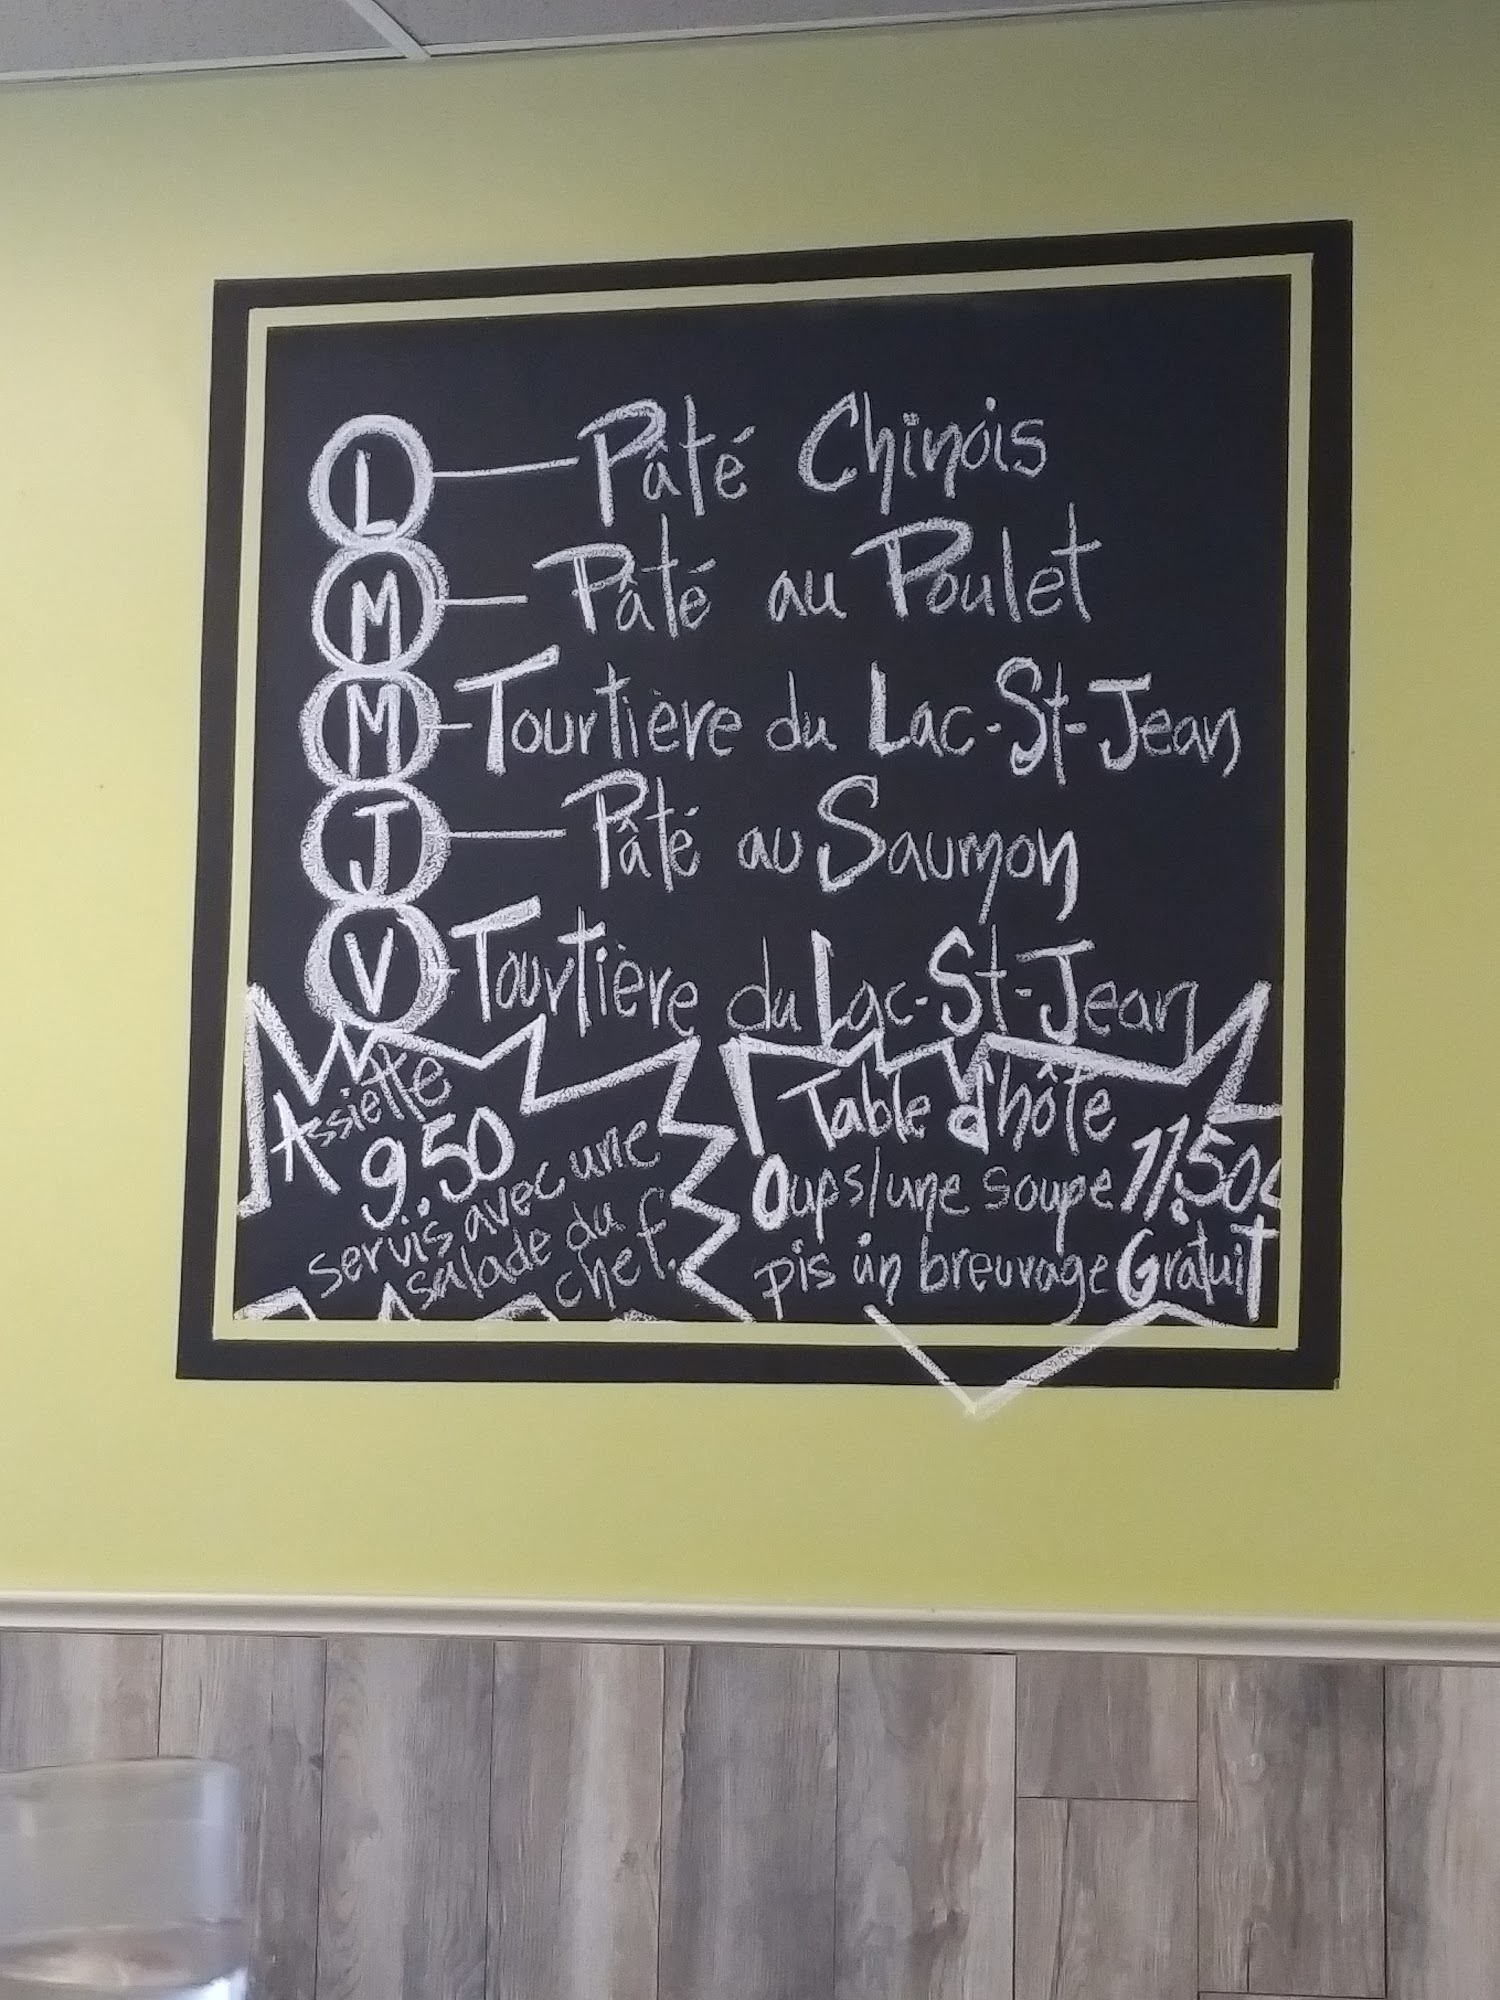 L Pâté Chinois
M Pâté au Poulet
M Tourtière du Lac-St-Jean
J Pâté au Saumon
V Tourtière du Lac-St-Jean
Assiette
9.50
servis avec une
salade du
chef.
Table d'hôte
Oups! une soupe 11.50
pis un breuvage Gratuit